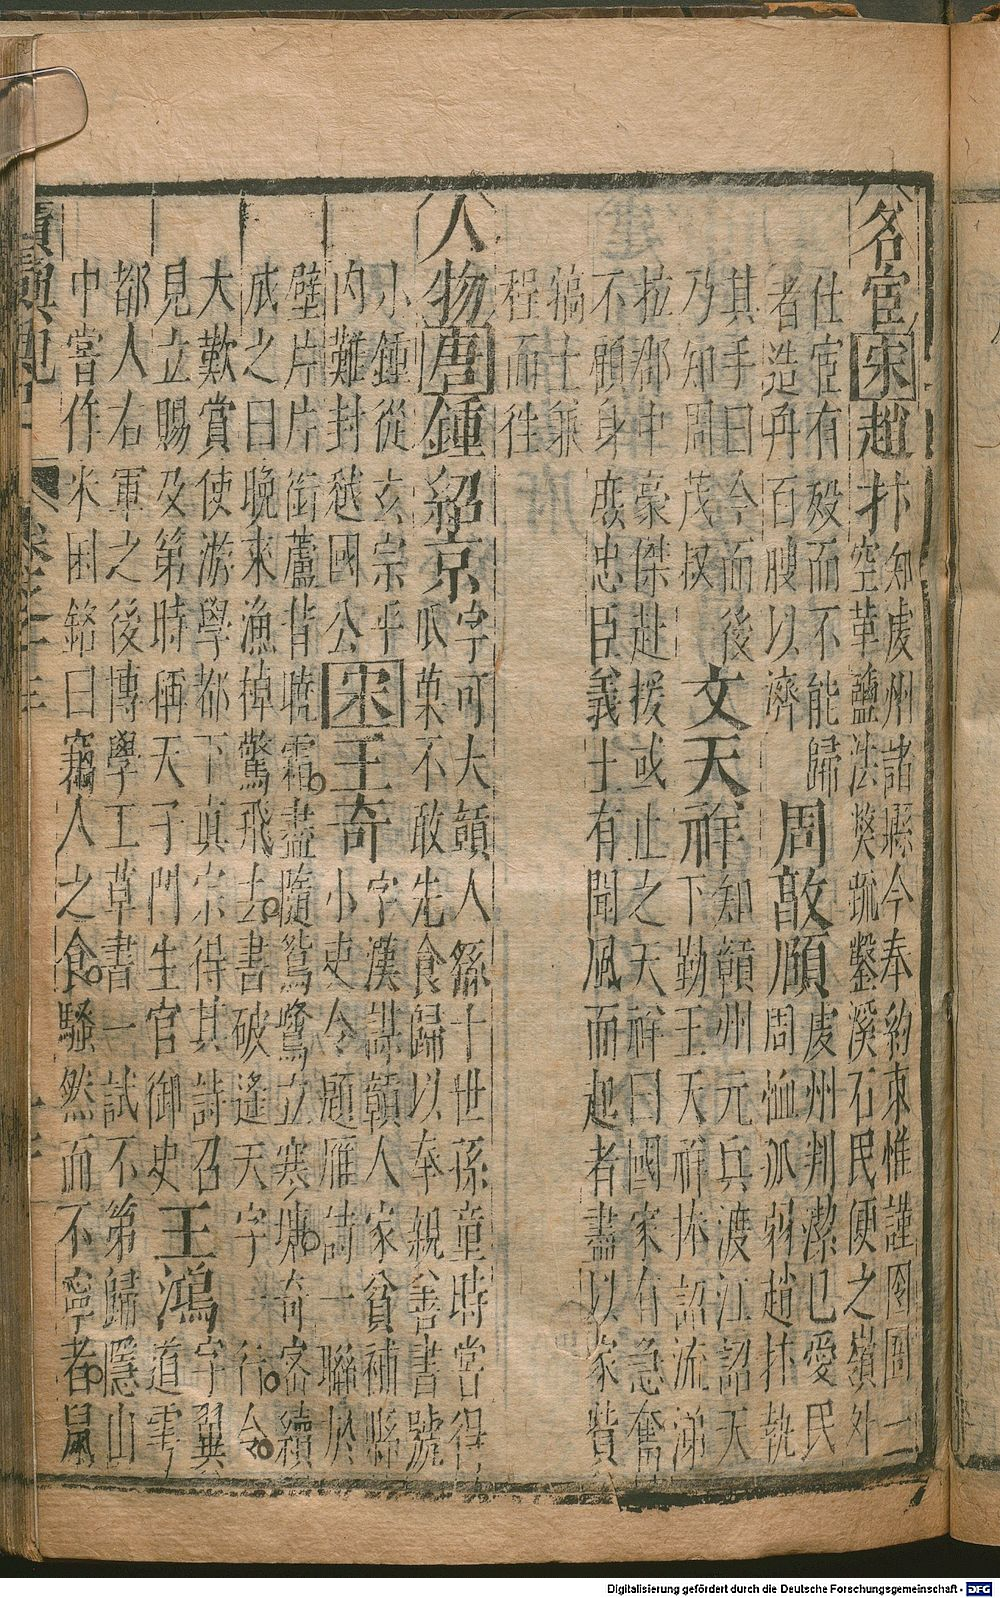 名宦宋趙抃知虔州諸縣今奉約束惟謹囹圄一
空革鹽法獘疏鑿溪石民便之嶺外
仕宦有歿而不能歸
者造舟百艘以濟
周敦頤虔州判潔已愛民
周恤孤弱趙抃執
其手曰今而後
乃知周茂叔
文天祥知贛州元兵渡江詔天
下勤王天祥捧詔流涕
拉郡中豪傑赴援或止之天祥曰國家有急奮
不顧身庻忠臣義士有聞風而起者盡以家貲
犒士兼
程而徃
人物唐鍾紹京字可大贛人繇十世孫童時嘗得
瓜菓不敢先食歸以奉親善書號
小鍾從玄宗平
內難封越國公
宋王奇字漢謀贛人家貧補縣
小吏令題雁詩一聯於
壁片片銜蘆背暁霜盡隨鴛鷺立寒塘奇密續
成之曰晩來漁棹驚飛去書破遙天字一行令
大歎賞使游學都下眞宗得其詩召
見立賜及第時稱天子門生官御史
王鴻字翼
道雩
都人右軍之後博學工草書一試不第歸隱山
中嘗作米囷銘曰竊人之食騷然而不寧者鼠
Digitalisierung gefördert durch die Deutsche Forschungsgemeinschaft - DFG